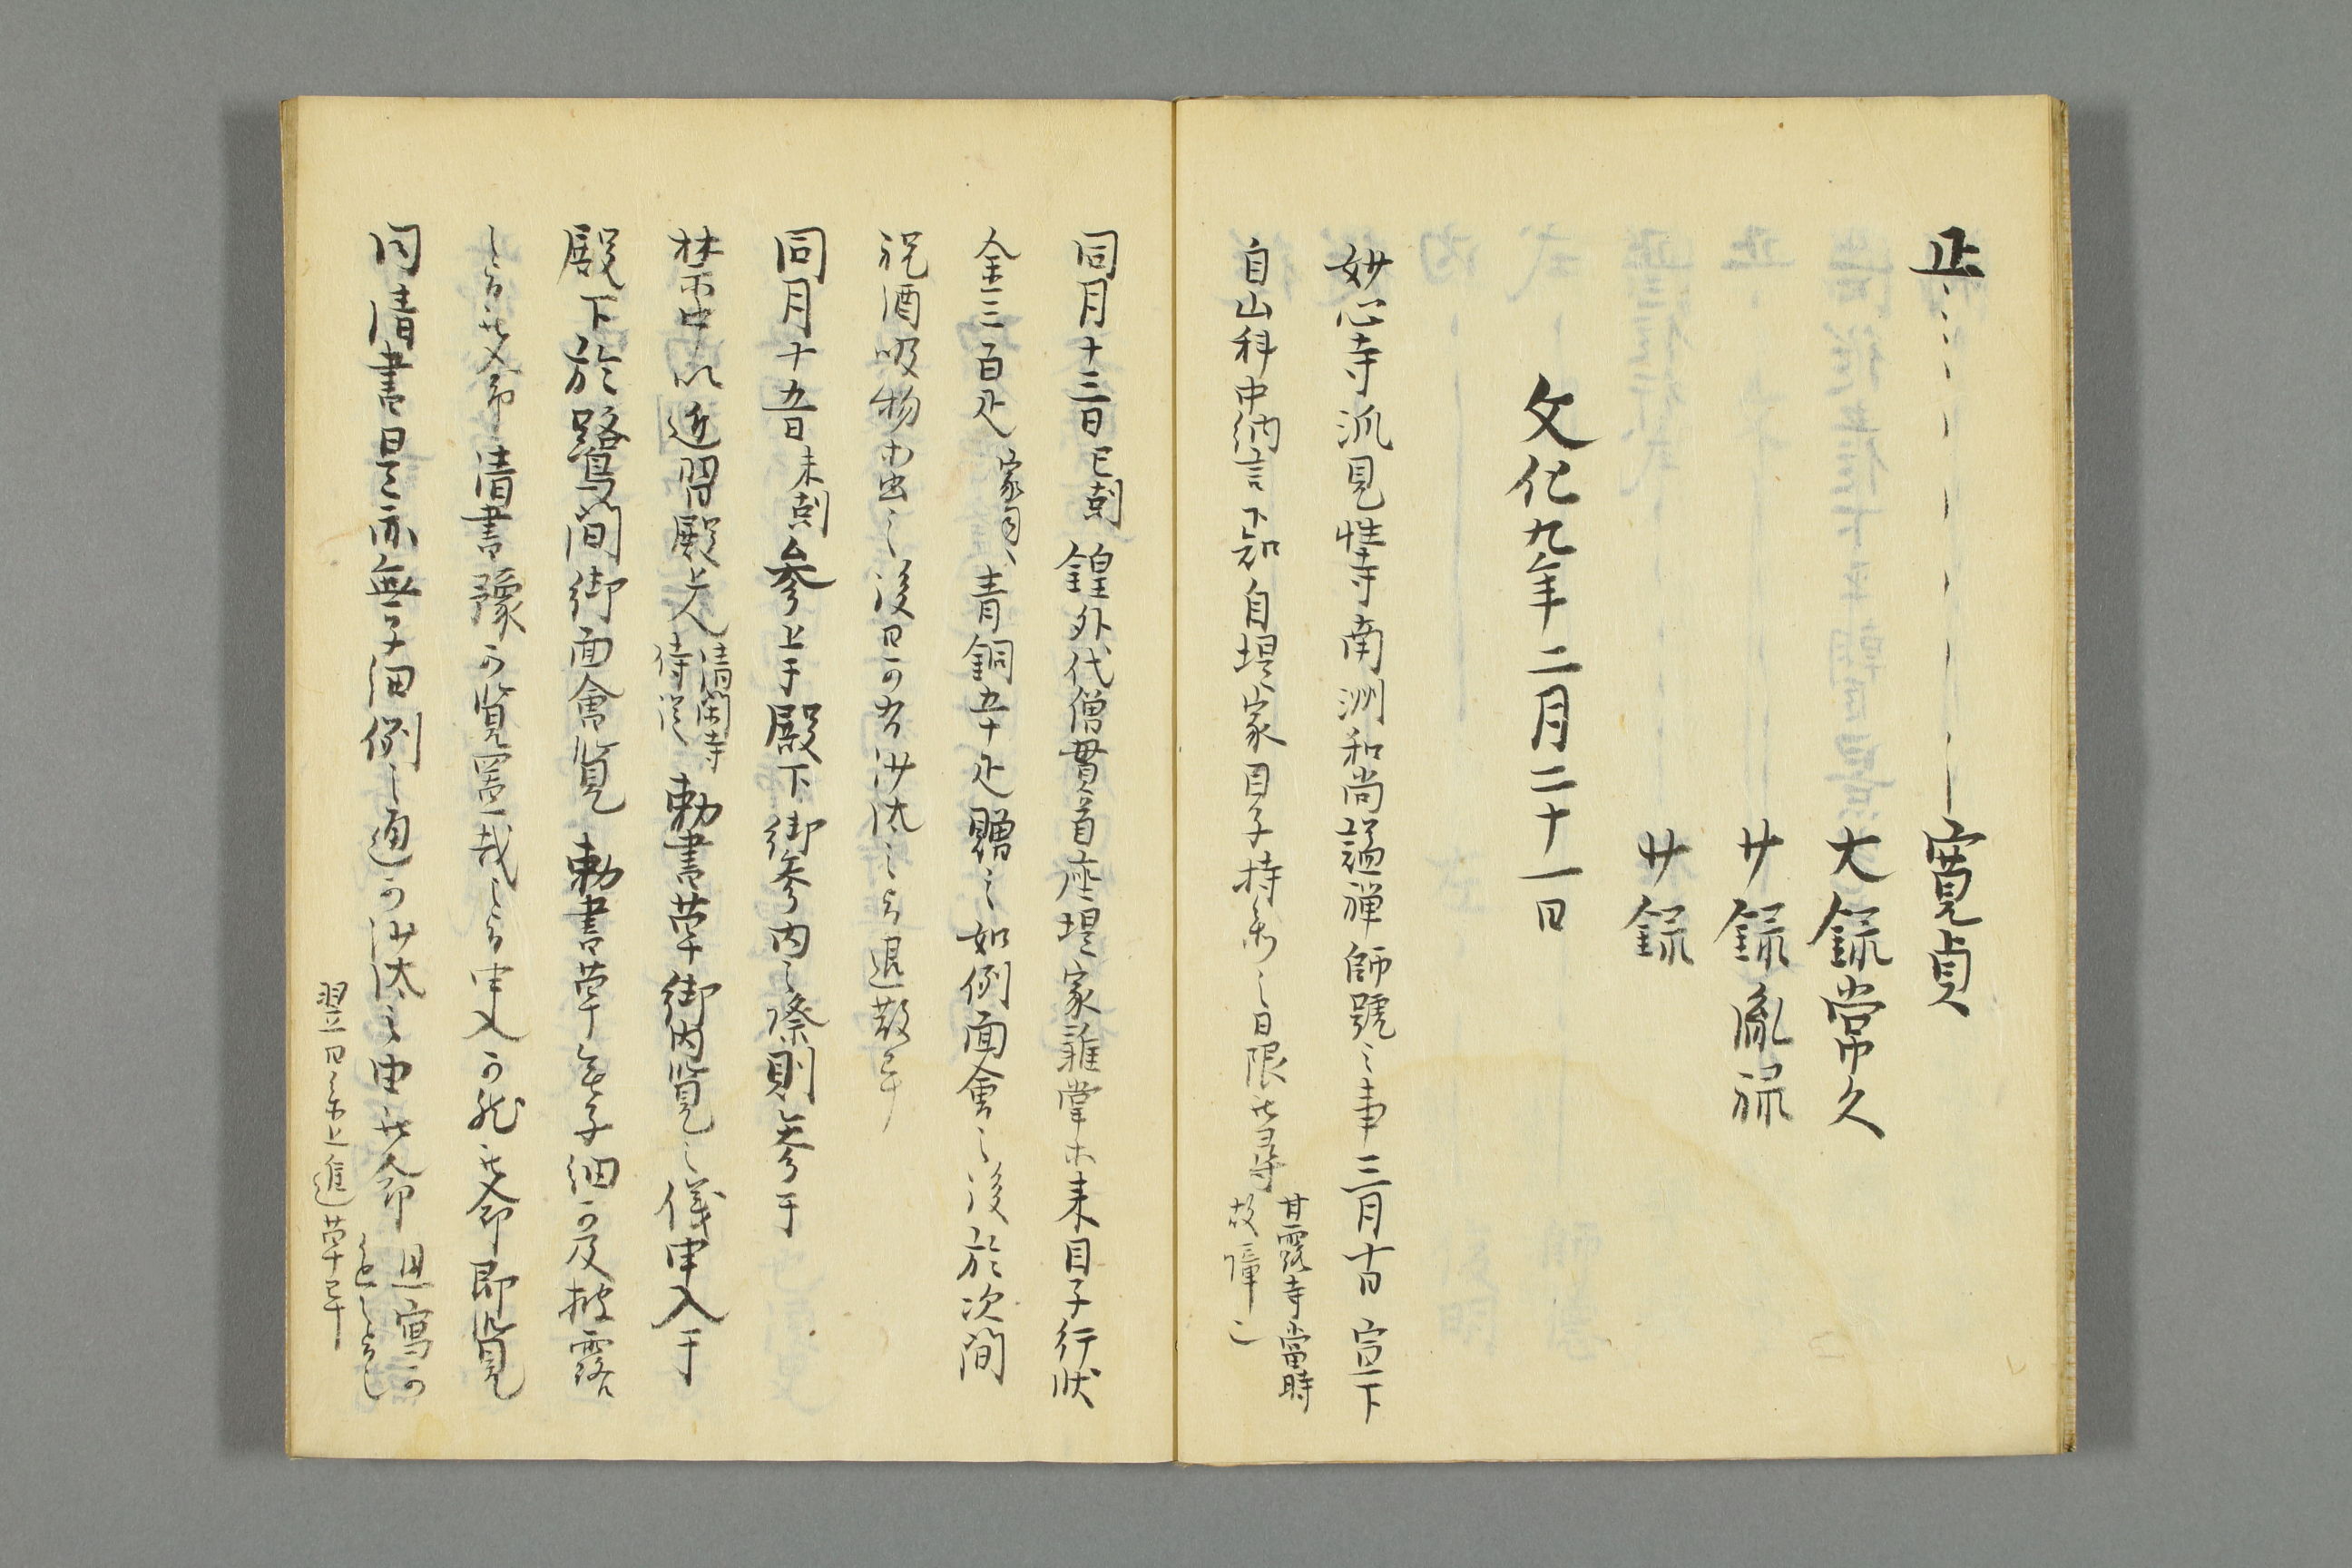 正 寛貞
大録常久
廾録胤禄
廾録
文化九年二月二十一日
妙心寺派見性寺南洲和尚謚禅師號之事三月十一日宣下
自山科中納言下知自堤家目子持参之日限被尋
甘露寺當時
故障
同月十三日巳剋鍠外代僧貫首座堤家雑掌等来目子行状
金三百疋 青銅五十疋贈之如例面會之後於次間
祝酒吸物由出之後日可有沙汰之旨退散了
同月十五日未剋参上于殿下御参内之際則参于
禁中以近習殿上人 清閑寺侍従 勅書草御内覧之儀申入于
殿下於鷺間御面會覧 勅書草無子細可及披露
之旨被命清書豫可覧置哉之旨申入可然被命即覧
同清書是亦無子細例之通可沙汰之由被命
翌日 上進草了